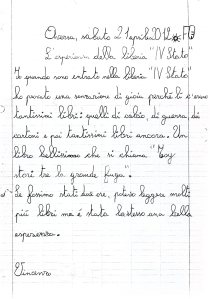 Aversa, sabato 21 aprile 2012
L'esperienza della libreria "IV Stato"
Io quando sono entrato nella libreria "IV Stato"
ho provato una sensazione di gioia perché lì c'erano
tantissimi libri: quelli di calcio, di guerra, dei
cartoni e poi tantissimi libri ancora. Un
libro bellissimo che si chiama "Toy
stori tre la grande fuga".
Se fossimo stati due ore, potevo leggere molti
più libri ma è stata lo stesso una bella
esperienza.
Vincenzo